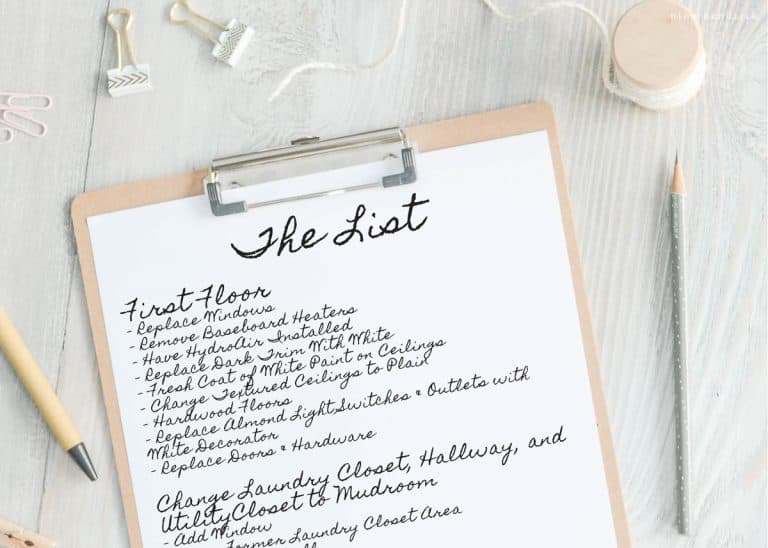 The List
First Floor
- Replace Windows
- Remove Baseboard Heaters
- Have HydroAir Installed
- Replace Dark Trim With White
- Fresh Coat of White Paint on Ceilings
- Change Textured Ceilings to Plain
- Hardwood Floors
- Replace Almond Light Switches & Outlets with
White Decorator
- Replace Doors & Hardware
Change Laundry Closet, Hallway, and
Utility Closet to Mudroom
- Add Window
Former Laundry Closet Area